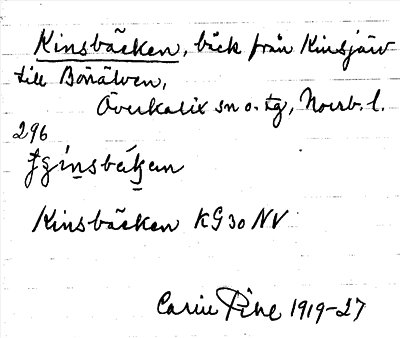 Kinsbäcken, bäck från Kinsjärv
till Börälven,
Överkalix sn o. tg, Norrb. l.
296
Kinsbäcken KG 30 NV
Carin Pihl 1919-27